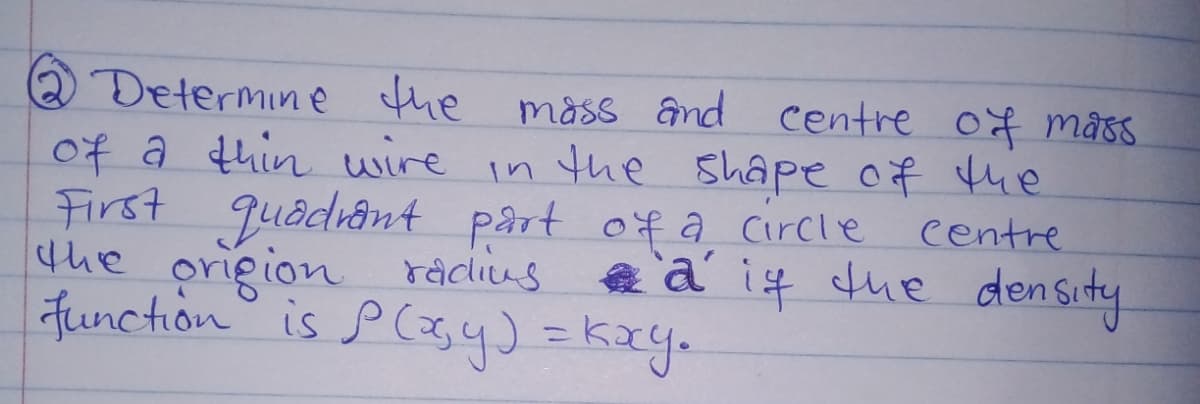 ② Determine the mass and centre of mass
of a thin wire in the shape of the
First quadrant part of a circle centre
the origion radius 'a' if the density
function is ρ(x,y) = kxy.